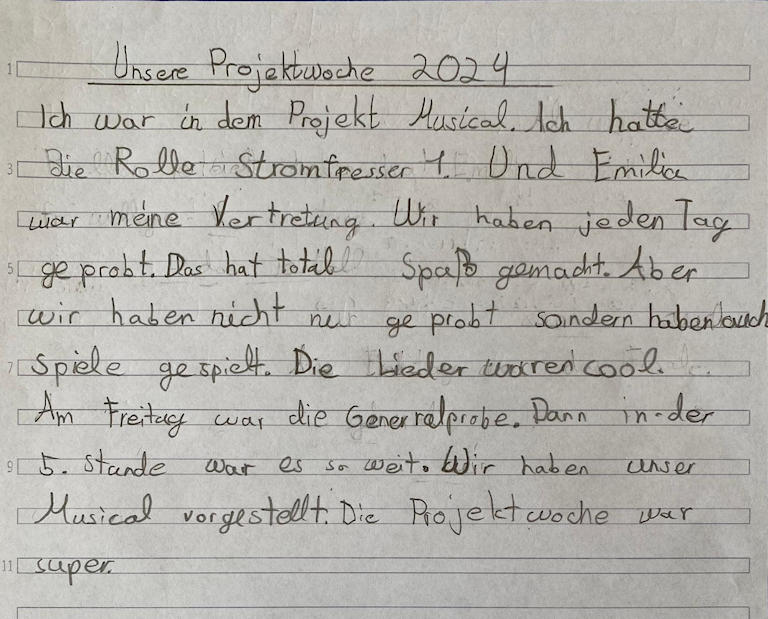 1 Unsere Projektwoche 2024
Ich war in dem Projekt Musical. Ich hatte
3 die Rolle Stromfresser 1. Und Emilia
war meine Vertretung. Wir haben jeden Tag
5 geprobt. Das hat total Spaß gemacht. Aber
wir haben nicht nur geprobt sondern haben auch
7 Spiele gespielt. Die Lieder waren cool.
Am Freitag war die Generralprobe. Dann in der
9 5. Stande war es so weit. Wir haben unser
Musical vorgestellt. Die Projektwoche war
11 super.